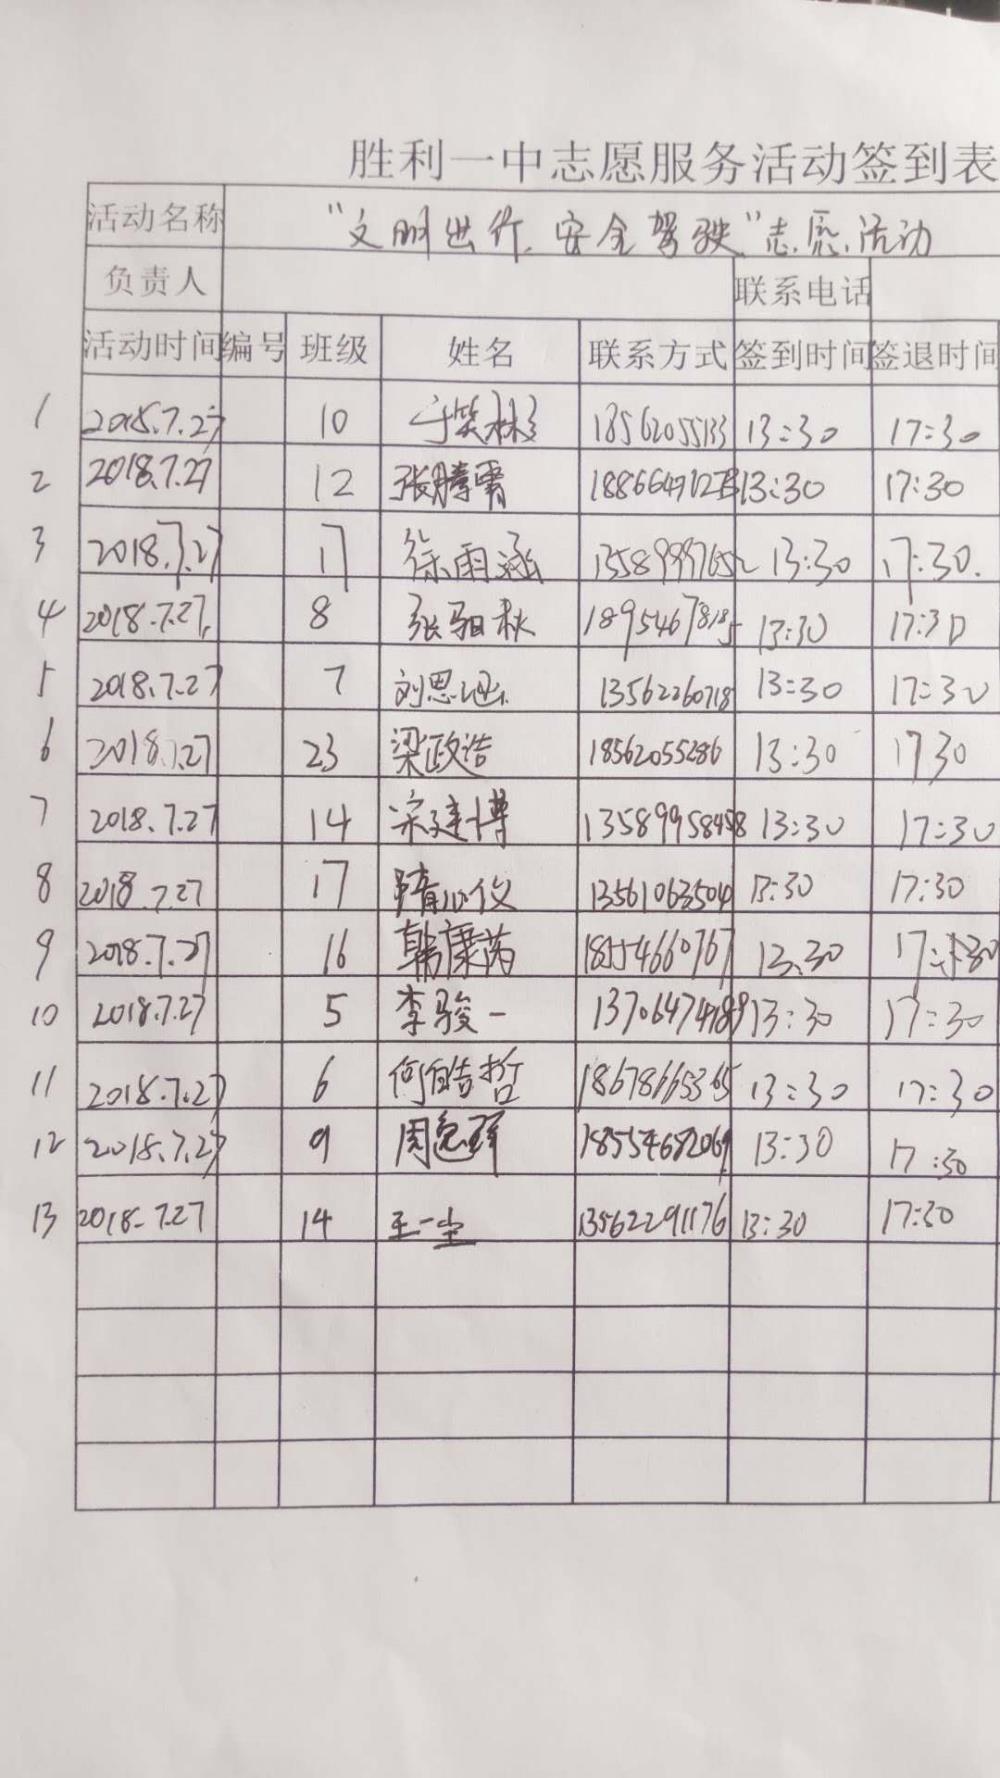 胜利一中志愿服务活动签到表
活动名称 “文明出行,安全驾驶”志愿活动
负责人 联系电话
活动时间 编号 班级 姓名 联系方式 签到时间 签退时间
1 2018.7.27 10 于笑彬 18562055133 13:30 17:30
2 2018.7.27 12 张腾霄 13:30 17:30
3 2018.7.27 17 徐雨涵 13589997652 13:30 17:30.
4 2018.7.27. 8 张驲秋 18954678185 13:30 17:30
5 2018.7.27 7 刘思涵 13562260718 13:30 17:30
6 2018.7.27 23 梁政浩 18562055286 13:30 1730
7 2018.7.27 14 宋建博 13589958498 13:30 17:30
8 2018.7.27 17 隋心仪 13561063504 13:30 17:30
9 2018.7.27 16 韩康芮 18554660767 13:30 17:30
10 2018.7.27 5 李骏一 13706474189 13:30 17:30
11 2018.7.27 6 何皓哲 18678665365 13:30 17:30
12 2018.7.27 9 周逸群 18554682069 13:30 17:30
13 2018.7.27 14 王一尘 13562291176 13:30 17:30